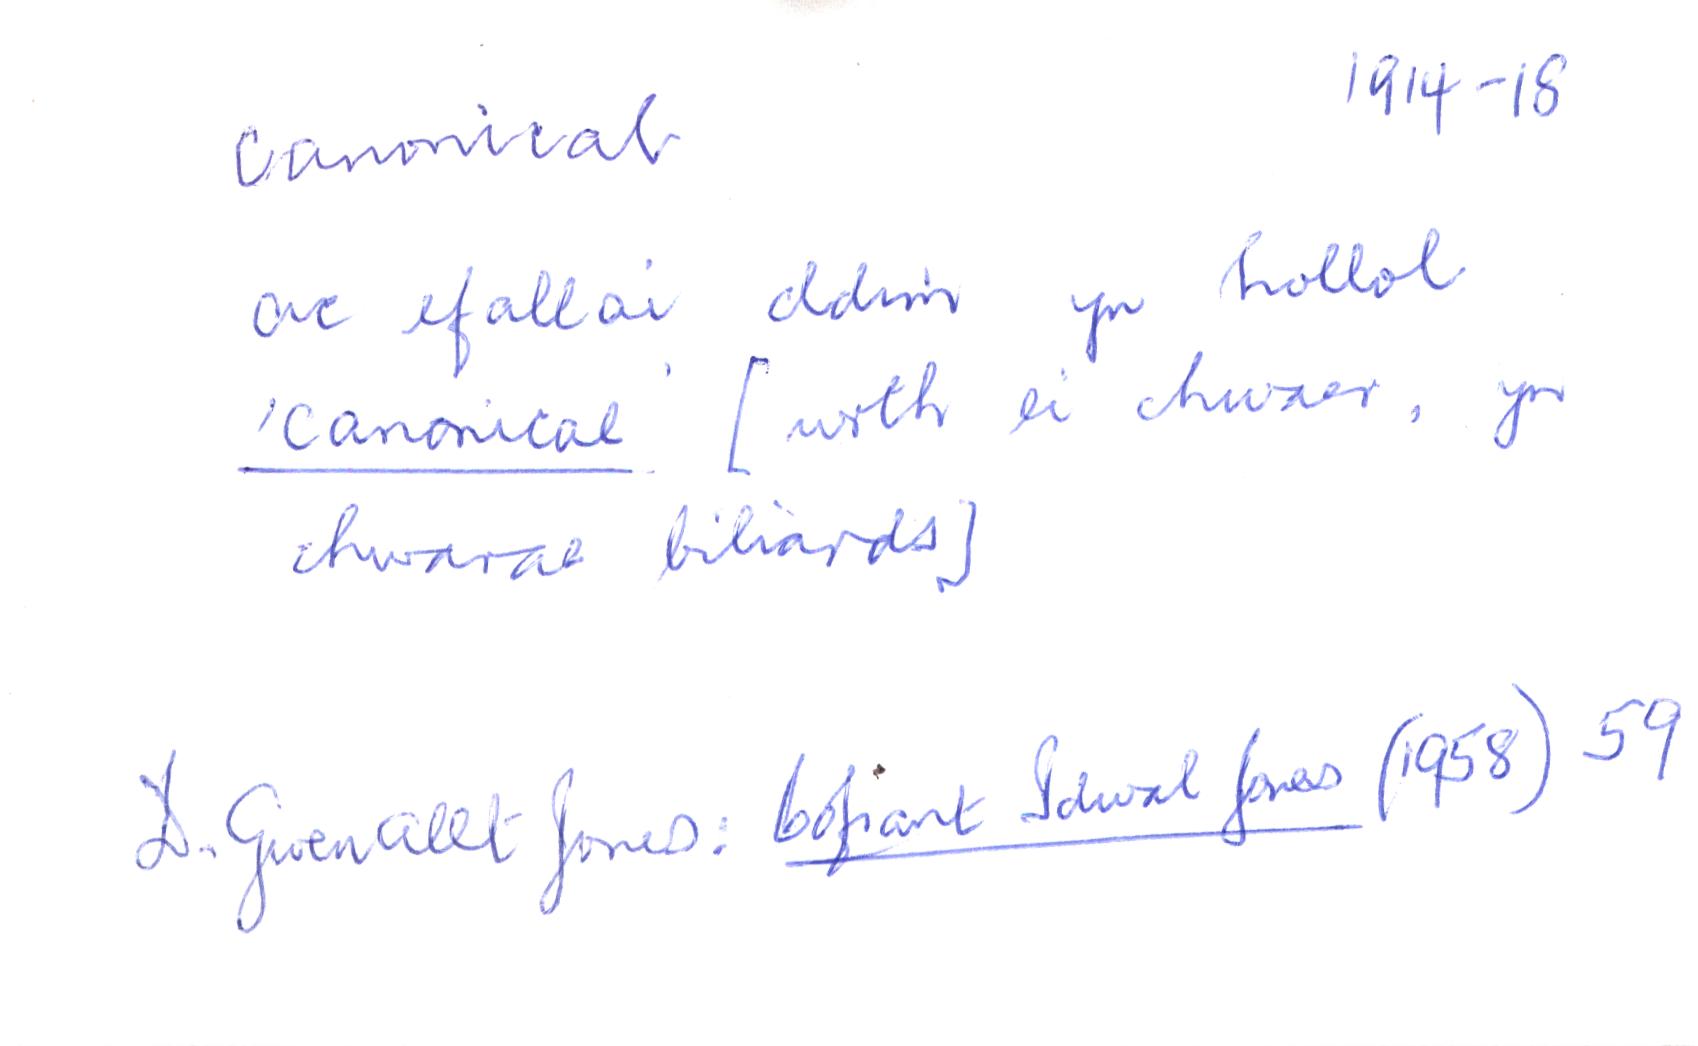 1914-18
canonical
ac efallai ddim yn hollol
'canonical' [wrth ei chwaer, yn
chwarae biliards]
D. Gwenallt Jones: Cofiant Idwal Jones (1958) 59